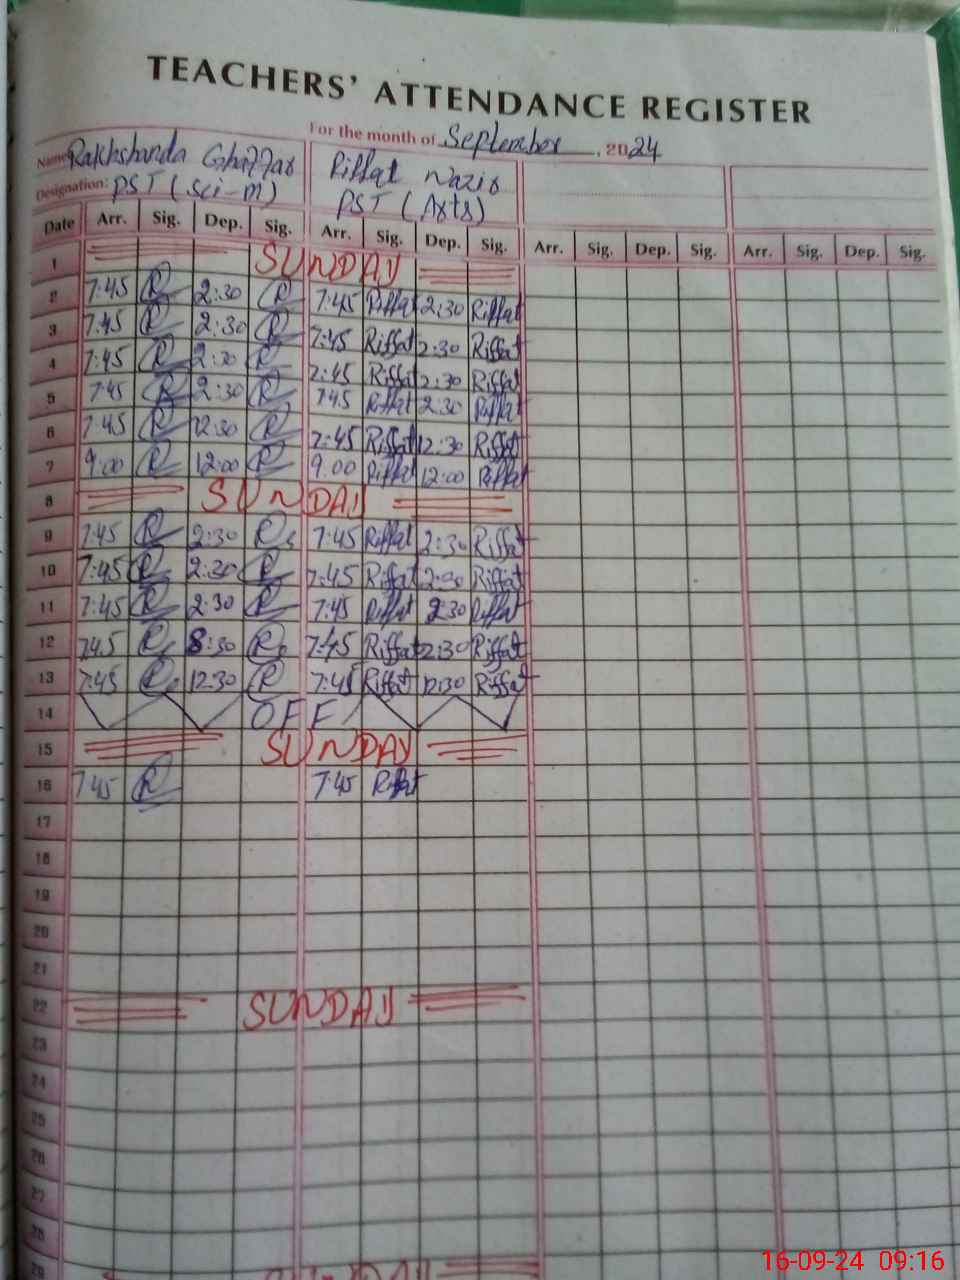 TEACHERS' ATTENDANCE REGISTER
For the month of September, 2024
Name Rakhshanda Ghaffar Riffat Nazir
Designation: PST (Sci-m) PST (Arts)
Date Arr. Sig. Dep. Sig. Arr. Sig. Dep. Sig. Arr. Sig. Dep. Sig. Arr. Sig. Dep. Sig.
1 SUNDAY
2 7:45 R 2:30 R 7:45 Riffat 2:30 Riffat
3 7:45 R 2:30 R 7:45 Riffat 2:30 Riffat
4 7:45 R 2:30 R 7:45 Riffat 2:30 Riffat
5 7:45 R 2:30 R 7:45 Riffat 2:30 Riffat
6 7:45 R 12:30 R 7:45 Riffat 12:30 Riffat
7 9:00 R 12:00 R 9:00 Riffat 12:00 Riffat
8 SUNDAY
9 7:45 R 2:30 R 7:45 Riffat 2:30 Riffat
10 7:45 R 2:30 R 7:45 Riffat 2:30 Riffat
11 7:45 R 2:30 R 7:45 Riffat 2:30 Riffat
12 7:45 R :30 R 7:45 Riffat 2:30 Riffat
13 7:45 R 12:30 R 7:45 Riffat 12:30 Riffat
14 OFF
15 SUNDAY
16 7:45 R 7:45 Riffat
17
18
19
20
21
22 SUNDAY
23
24
25
26
27
28
29 SUNDAY
16-09-24 09:16